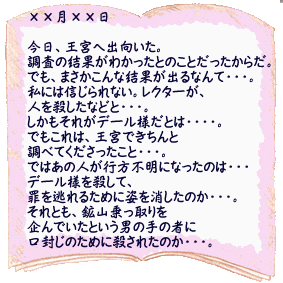 ××月××日
今日、王宮へ出向いた。
調査の結果がわかったとのことだったからだ。
でも、まさかこんな結果が出るなんて・・・。
私には信じられない。レクターが、
人を殺したなどと・・・。
しかもそれがデール様だとは・・・・。
でもこれは、王宮できちんと
調べてくださったこと・・・。
ではあの人が行方不明になったのは・・・
デール様を殺して、
罪を逃れるために姿を消したのか・・・。
それとも、鉱山乗っ取りを
企んでいたという男の手の者に
口封じのために殺されたのか・・・。